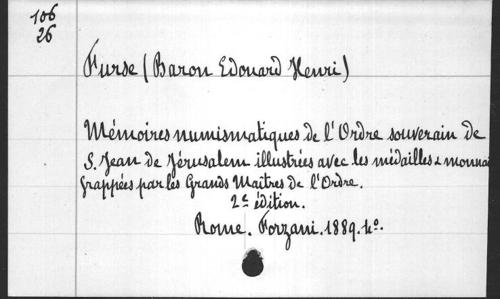 106
26
Furse (Baron Edouard Henri)
Mémoires numismatiques de l'Ordre souverain de
S. Jean de Jérusalem illustrées avec les médailles & monnai
frappées par les Grands Maîtres de l'Ordre.
2e édition.
Rome. Forzani. 1889. 4o.